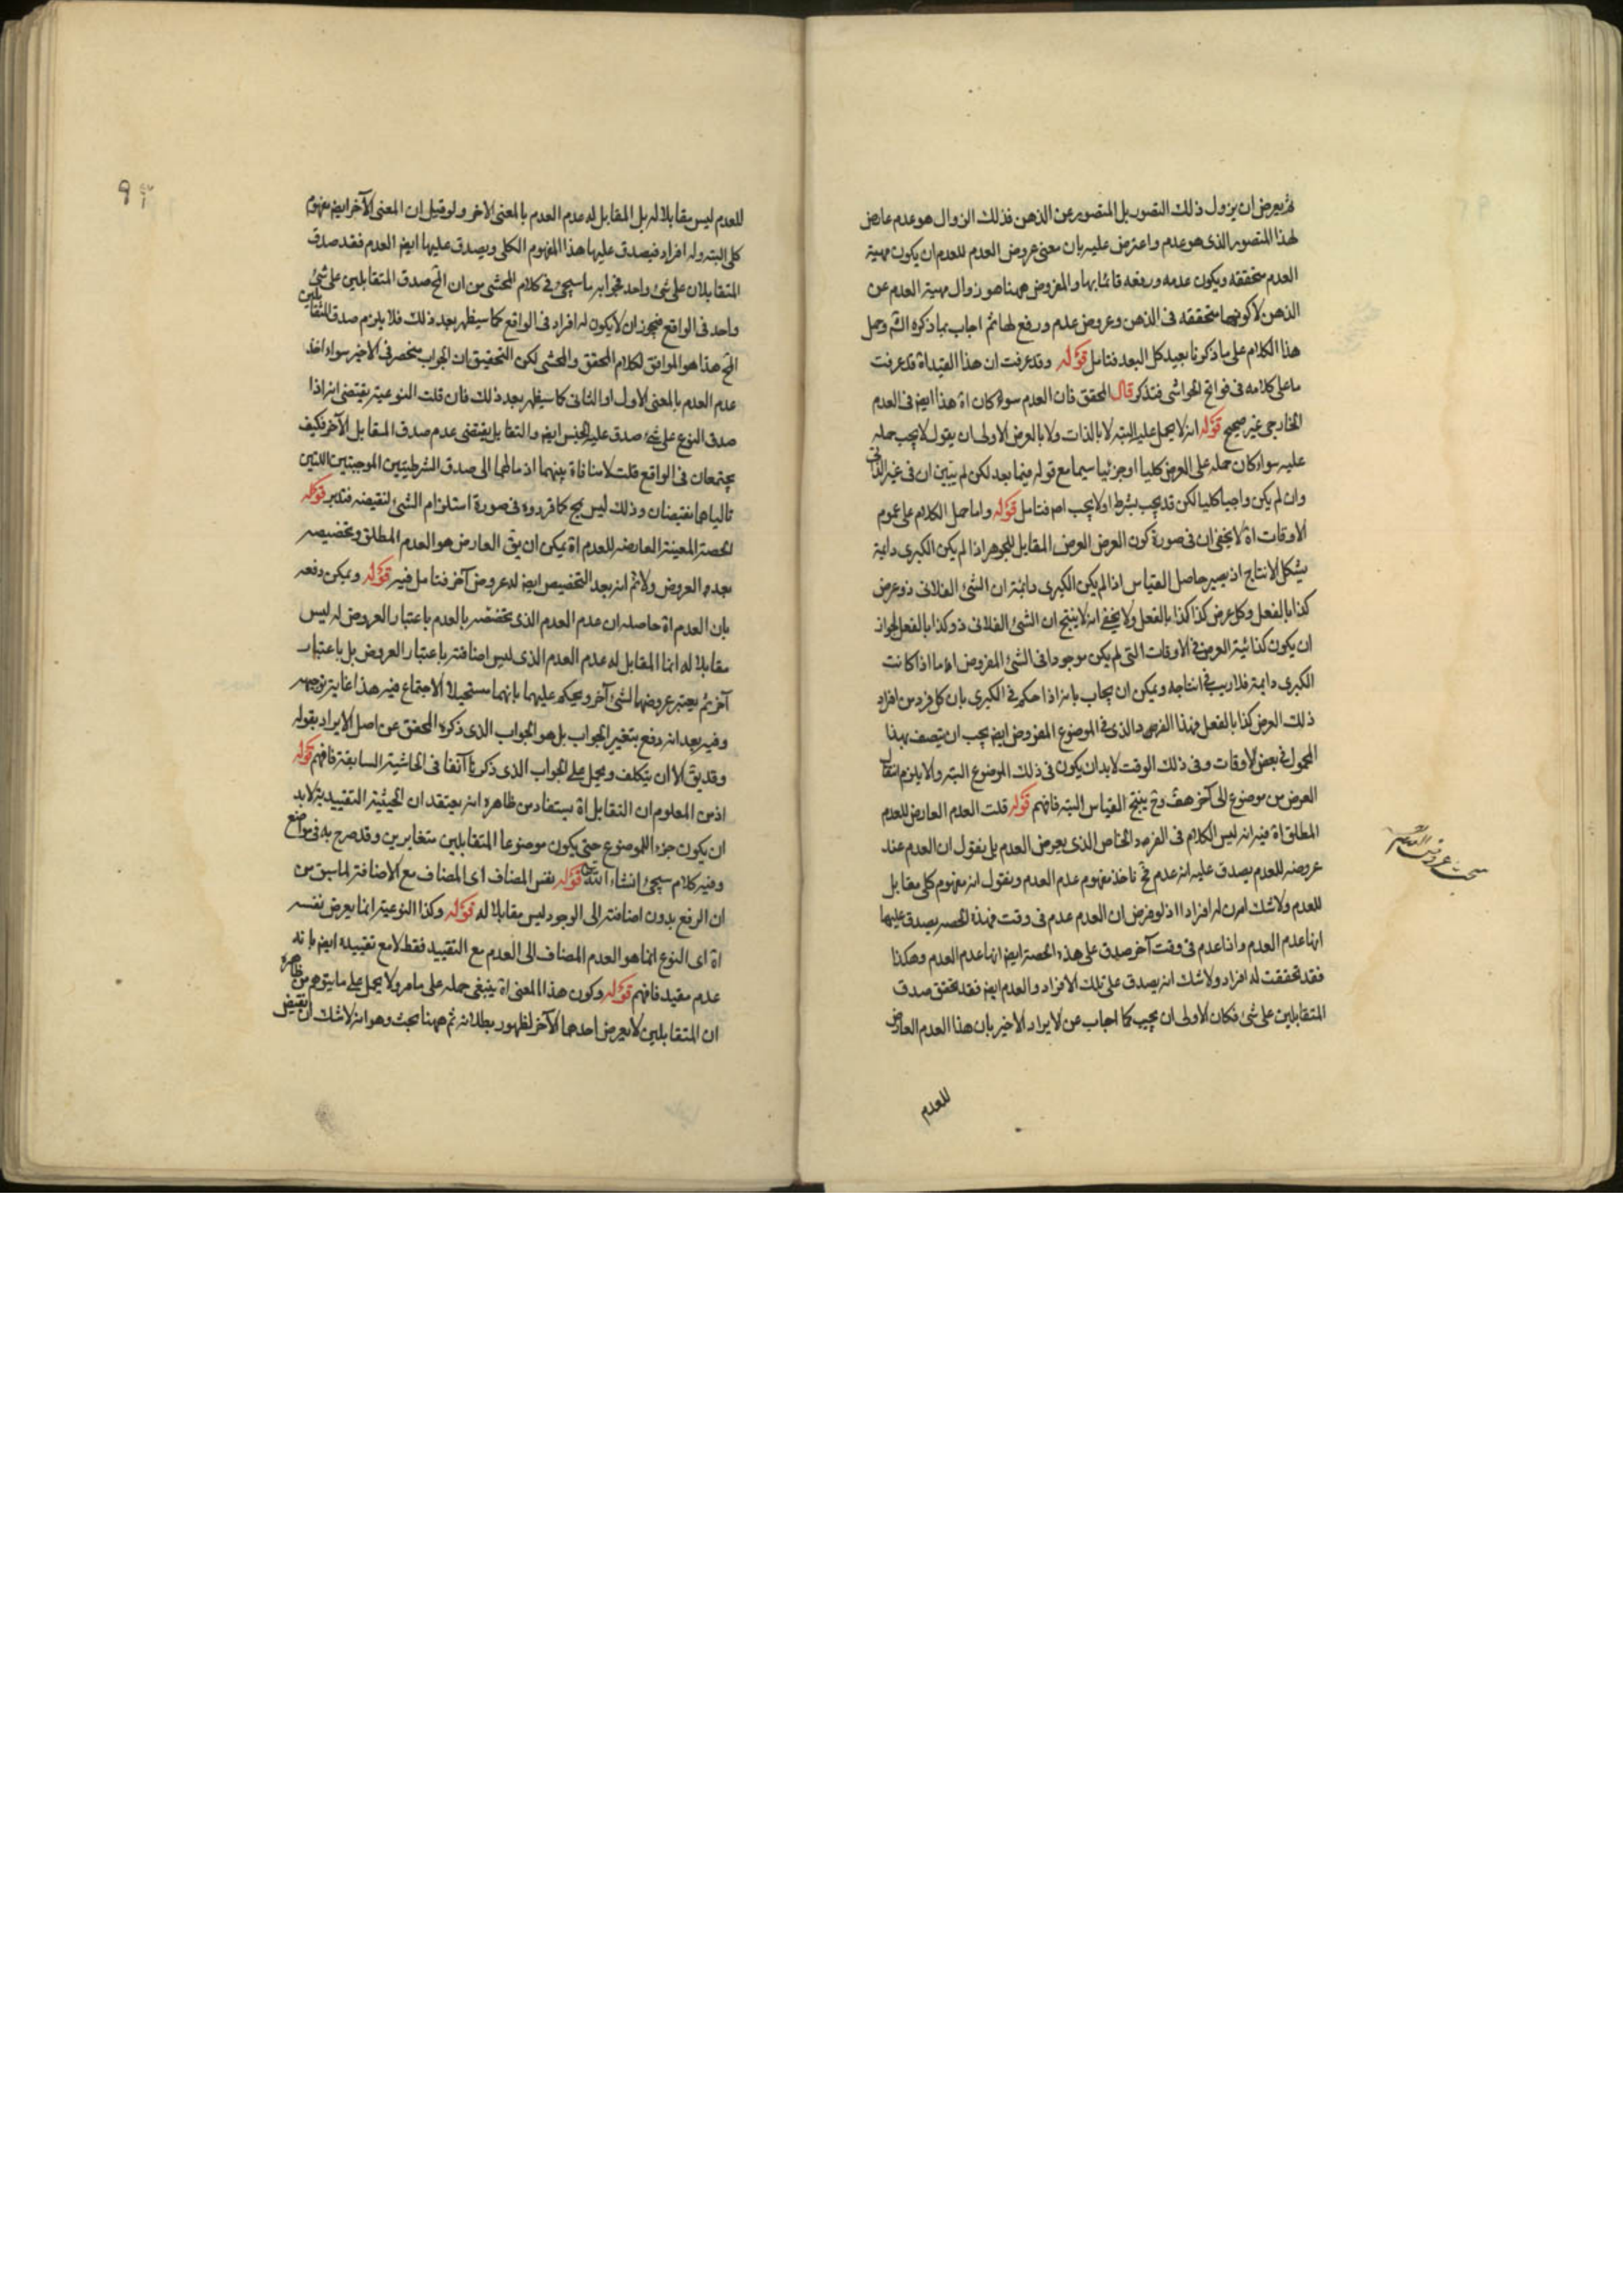 ثم يعرض ان يزول ذلك التصور بل المتصور عن الذهن فذلك الزوال هو عدم عارض
لهذا المتصور الذى هو عدم واعترض عليه بان معنى عروض العدم للعدم ان يكون مهية
العدم متحققة ويكون عدمه ورفعه قائما بها والمفروض ههنا هو زوال مهية العدم عن
الذهن لا كونها متحققة فى الذهن وعروض عدم ورفع لها ثم اجاب بما ذكره الشَ وحمل
هذا الكلام على ما ذكرنا بعيد كل البعد فتامل قوله وقد عرفت ان هذا القيد اه قد عرفت
ما على كلامه فى فواتح الحواشى فتذكر قال المحقق فان العدم سواء كان اه هذا ايض فى العدم
الخارجى غير صحيح قوله انه لا يحمل عليه البتة لا بالذات ولا بالعرض الاولى ان يقول لا يجب حمله
عليه سواء كان حمله على العرض كليا او جزئيا سيما مع قوله فيما بعد لكن لم يتبين ان فى غير الذاتى
وان لم يكن واجبا كليا لكن قد يجب بشرط او لا يجب اه فتامل قوله واما حمل الكلام على عموم
الاوقات اه لا يخفى ان فى صورة كون العرض العرض المقابل للجوهر اذا لم يكن الكبرى دائمة
يشكل الانتاج اذ يصير حاصل القياس اذا لم يكن الكبرى دائمة ان الشئ الفلانى ذو عرض
كذا بالفعل وكل عرض كذا كذا بالفعل ولا يخفى انه لا ينتج ان الشئ الفلانى ذو كذا بالفعل لجواز
ان يكون كذائية العرض فى الاوقات التى لم يكن موجودا فى الشئ المفروض اه اما اذا كانت
الكبرى دائمة فلا ريب فى انتاجه ويمكن ان يجاب بانه اذا حكم فى الكبرى بان كل فرد من افراد
ذلك العرض كذا بالفعل فهذا الفرد الذى فى الموضوع المفروض ايض يجب ان يتصف بهذا
المحمول فى بعض الاوقات وفى ذلك الوقت لا بد ان يكون فى ذلك الموضوع البتة والا يلزم انتقال
العرض من موضوع الى آخر هف وح ينتج القياس البتة فافهم قوله قلت العدم العارض للعدم
المطلق اه فيه انه ليس الكلام فى الفرد الخاص الذى يعرض العدم بل يقول ان العدم عند
عروضه للعدم يصدق عليه انه عدم فح ناخذ مفهوم عدم العدم ويقول انه مفهوم كلى مقابل
للعدم ولا شك ان له افرادا اذ لو فرض ان العدم عدم فى وقت فهذه الحصة يصدق عليها
انها عدم العدم واذا عدم فى وقت آخر صدق على هذه الحصة ايض انها عدم العدم وهكذا
فقد تحققت له افراد ولا شك انه يصدق على تلك الافراد والعدم ايض فقد تحقق صدق
المتقابلين على شئ فكان الاولى ان يجيب كما اجاب عن الايراد الاخير بان هذا العدم العارض
للعدم
للعدم ليس مقابلا له بل المقابل له عدم العدم بالمعنى الاخر ولو قيل ان المعنى الآخر ايض مفهوم
كلى البتة وله افراد فيصدق عليها هذا المفهوم الكلى ويصدق عليها ايض العدم فقد صدق
المتقابلان على شئ واحد فجوابه ما سيجئ فى كلام المحشى من ان المح صدق المتقابلين على شئ
واحد فى الواقع فيجوز ان لا يكون له افراد فى الواقع كما سيظهر بعد ذلك فلا يلزم صدق المتقابلين
المح هذا هو الموافق لكلام المحقق والمحشى لكن التحقيق ان الجواب منحصر فى الاخير سواء اخذ
عدم العدم بالمعنى الاول او الثانى كما سيظهر بعد ذلك فان قلت النوعية يقتضى انه اذا
صدق النوع على شئ صدق عليه الجنس ايض والتقابل يقتضى عدم صدق المقابل الآخر فكيف
يجتمعان فى الواقع قلت لا منافاة بينهما اذ مآلهما الى صدق الشرطيتين الموجبتين اللتين
تالياهما نقيضان وذلك ليس بمح كما قرروه فى صورة استلزام الشئ لنقيضه فتدبر قوله
الحصة المعينة العارضة للعدم اه يمكن ان يق العارض هو العدم المطلق وتخصيصه
بعد العروض ولا ثم انه بعد التخصيص ايض له عروض آخر فتامل فيه قوله ويمكن دفعه
بان العدم اه حاصله ان عدم العدم الذى تخصصه بالعدم باعتبار العروض له ليس
مقابلا له انما المقابل له عدم العدم الذى ليس اضافته باعتبار العروض بل باعتبار
آخر ثم يعتبر عروضها لشئ آخر ويحكم عليهما بانهما مستحيلا الاجتماع فيه هذا غاية توجيهه
وفيه بعد انه دفع بتغيير الجواب بل هو الجواب الذى ذكره المحقق عن اصل الايراد بقوله
وقد يق الا ان يتكلف ويحمل على الجواب الذى ذكرنا آنفا فى الحاشية السابقة فافهم قوله
اذ من المعلوم ان التقابل اه يستفاد من ظاهره انه يعتقد ان الحيثية التقييدية لا بد
ان يكون جزء الموضوع حتى يكون موضوعا المتقابلين متغايرين وقد صرح به فى مواضع
وفيه كلام سيجئ انشاء الله قوله نفس المضاف اى المضاف مع الاضافة لما سبق من
ان الرفع بدون اضافته الى الوجود ليس مقابلا له قوله وكذا النوعية انما يعرض نفسه
اه اى النوع انما هو العدم المضاف الى العدم مع التقييد فقط لا مع تقييده ايض بانه
عدم مقيد فافهم قوله وكون هذا المعنى اه ينبغى حمله على ما مر ولا يحمل على ما يتوهم من ظاهره
ان المتقابلين لا يعرض احدهما الآخر لظهور بطلانه ثم ههنا بحث وهو انه لا شك ان نقيض